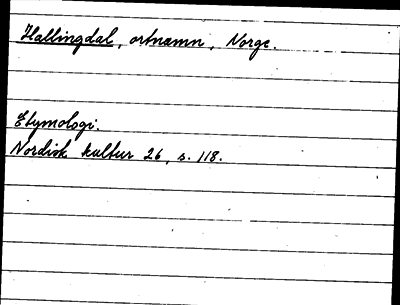 Hallingdal, ortnamn, Norge.
Etymologi.
Nordisk kultur 26, s. 118.